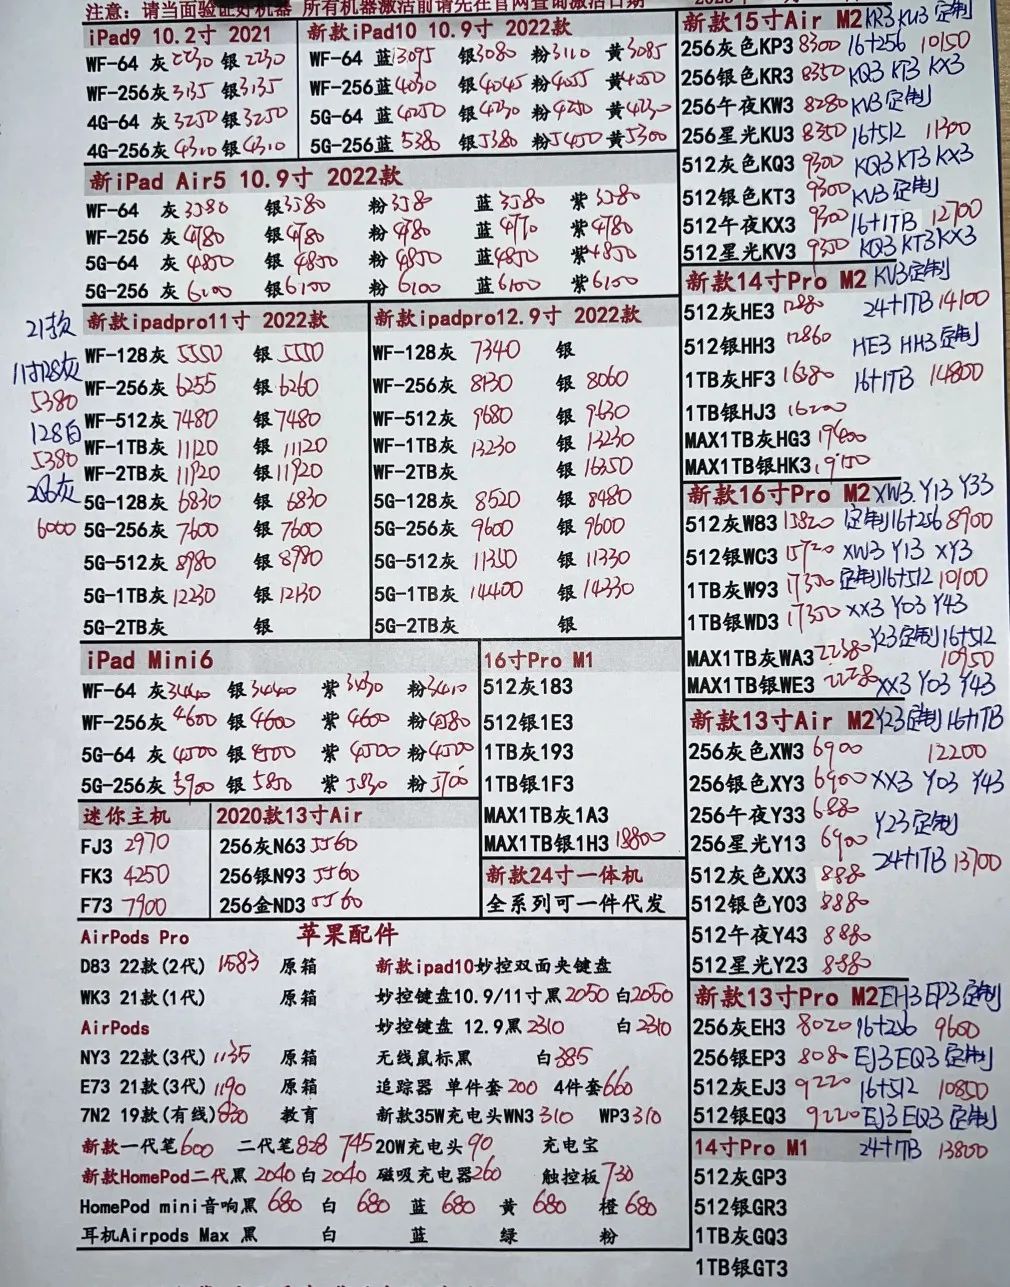 注意: 请当面验证好机器 所有机器激活前请先在官网查询激活日期
iPad9 10.2寸 2021
WF-64 灰2230 银2230
WF-256灰3135 银3135
4G-64 灰3250 银3250
4G-256灰4310 银4310
新款iPad10 10.9寸 2022款
WF-64 蓝3095 银3080 粉3110 黄3085
WF-256蓝4030 银4045 粉4055 黄4050
5G-64 蓝4250 银4230 粉4250 黄4230
5G-256蓝 5380 银5380 粉5400 黄5300
新iPad Air5 10.9寸 2022款
WF-64 灰3580 银3580 粉3580 蓝3580 紫3580
WF-256 灰4780 银4780 粉4780 蓝4770 紫4780
5G-64 灰4850 银4850 粉4850 蓝4850 紫4850
5G-256 灰6100 银6100 粉6100 蓝6100 紫6100
21款
11寸128灰
5380
128白
5380
256灰
6000
新款ipadpro11寸 2022款
WF-128灰 5550 银 5550
WF-256灰 6255 银 6260
WF-512灰 7480 银 7480
WF-1TB灰 11120 银 11120
WF-2TB灰 11920 银 11920
5G-128灰 6830 银 6830
5G-256灰 7600 银 7600
5G-512灰 8980 银 8980
5G-1TB灰 12230 银 12130
5G-2TB灰 银
新款ipadpro12.9寸 2022款
WF-128灰 7340 银
WF-256灰 8130 银 8060
WF-512灰 9680 银 9630
WF-1TB灰 13230 银 13230
WF-2TB灰 银 16350
5G-128灰 8520 银 8480
5G-256灰 9600 银 9600
5G-512灰 11350 银 11330
5G-1TB灰 14400 银 14330
5G-2TB灰 银
iPad Mini6
WF-64 灰3440 银3440 紫3430 粉3410
WF-256灰4600 银4600 紫4600 粉4580
5G-64 灰4500 银4500 紫4500 粉4500
5G-256灰5900 银5850 紫5830 粉5700
迷你主机
FJ3 2970
FK3 4250
F73 7900
2020款13寸Air
256灰N63 5560
256银N93 5560
256金ND3 5560
16寸Pro M1
512灰183
512银1E3
1TB灰193
1TB银1F3
MAX1TB灰1A3
MAX1TB银1H3 18800
新款24寸一体机
全系列可一件代发
苹果配件
AirPods Pro
D83 22款(2代) 1583 原箱 新款ipad10妙控双面夹键盘
WK3 21款(1代) 妙控键盘10.9/11寸黑2050 白2050
AirPods 妙控键盘 12.9黑2310 白2310
NY3 22款(3代) 1135 原箱 无线鼠标黑 白385
E73 21款(3代) 1190 原箱 追踪器 单件套200 4件套660
7N2 19款(有线)830 教育 新款35W充电头WN3 310 WP3 310
新款一代笔600 二代笔828 745 20W充电头90 充电宝
新款HomePod二代黑 2040 白 2040 磁吸充电器260 触控板730
HomePod mini音响黑 680 白 680 蓝 680 黄 680 橙 680
耳机Airpods Max 黑 白 蓝 绿 粉
新款15寸Air M2 KR3 KU3 定制
256灰色KP3 8300 16+256 10150
256银色KR3 8350 KQ3 KT3 KX3
256午夜KW3 8280 KV3定制
256星光KU3 8350 16+512 11300
512灰色KQ3 9300 KQ3 KT3 KX3
512银色KT3 9300 KV3定制
512午夜KX3 9300 16+1TB 12700
512星光KV3 9350 KQ3 KT3 KX3
新款14寸Pro M2 KV3定制
512灰HE3 12880 24+1TB 14100
512银HH3 12860 HE3 HH3定制
1TB灰HF3 16380 16+1TB 14800
1TB银HJ3 16200
MAX1TB灰HG3 19400
MAX1TB银HK3 19150
新款16寸Pro M2 XW3. Y13 Y33
512灰W83 15820 定制16+256 8900
512银WC3 15720 XW3 Y13 XY3
1TB灰W93 17350 定制16+512 10100
1TB银WD3 17350 XX3 Y03 Y43
MAX1TB灰WA3 22380 Y23定制16+512 10950
MAX1TB银WE3 22280 XX3 Y03 Y43
新款13寸Air M2 Y23定制 16+1TB
256灰色XW3 6900 12200
256银色XY3 6900 XX3 Y03 Y43
256午夜Y33 6880 Y23定制
256星光Y13 6900
512灰色XX3 8880 24+1TB 13700
512银色Y03 8880
512午夜Y43 8880
512星光Y23 8880
新款13寸Pro M2 EH3 EP3定制
256灰EH3 8020 16+256 9600
256银EP3 8080 EJ3 EQ3定制
512灰EJ3 9220 16+512 10850
512银EQ3 9220 EJ3 EQ3定制
14寸Pro M1 24+1TB 13800
512灰GP3
512银GR3
1TB灰GQ3
1TB银GT3